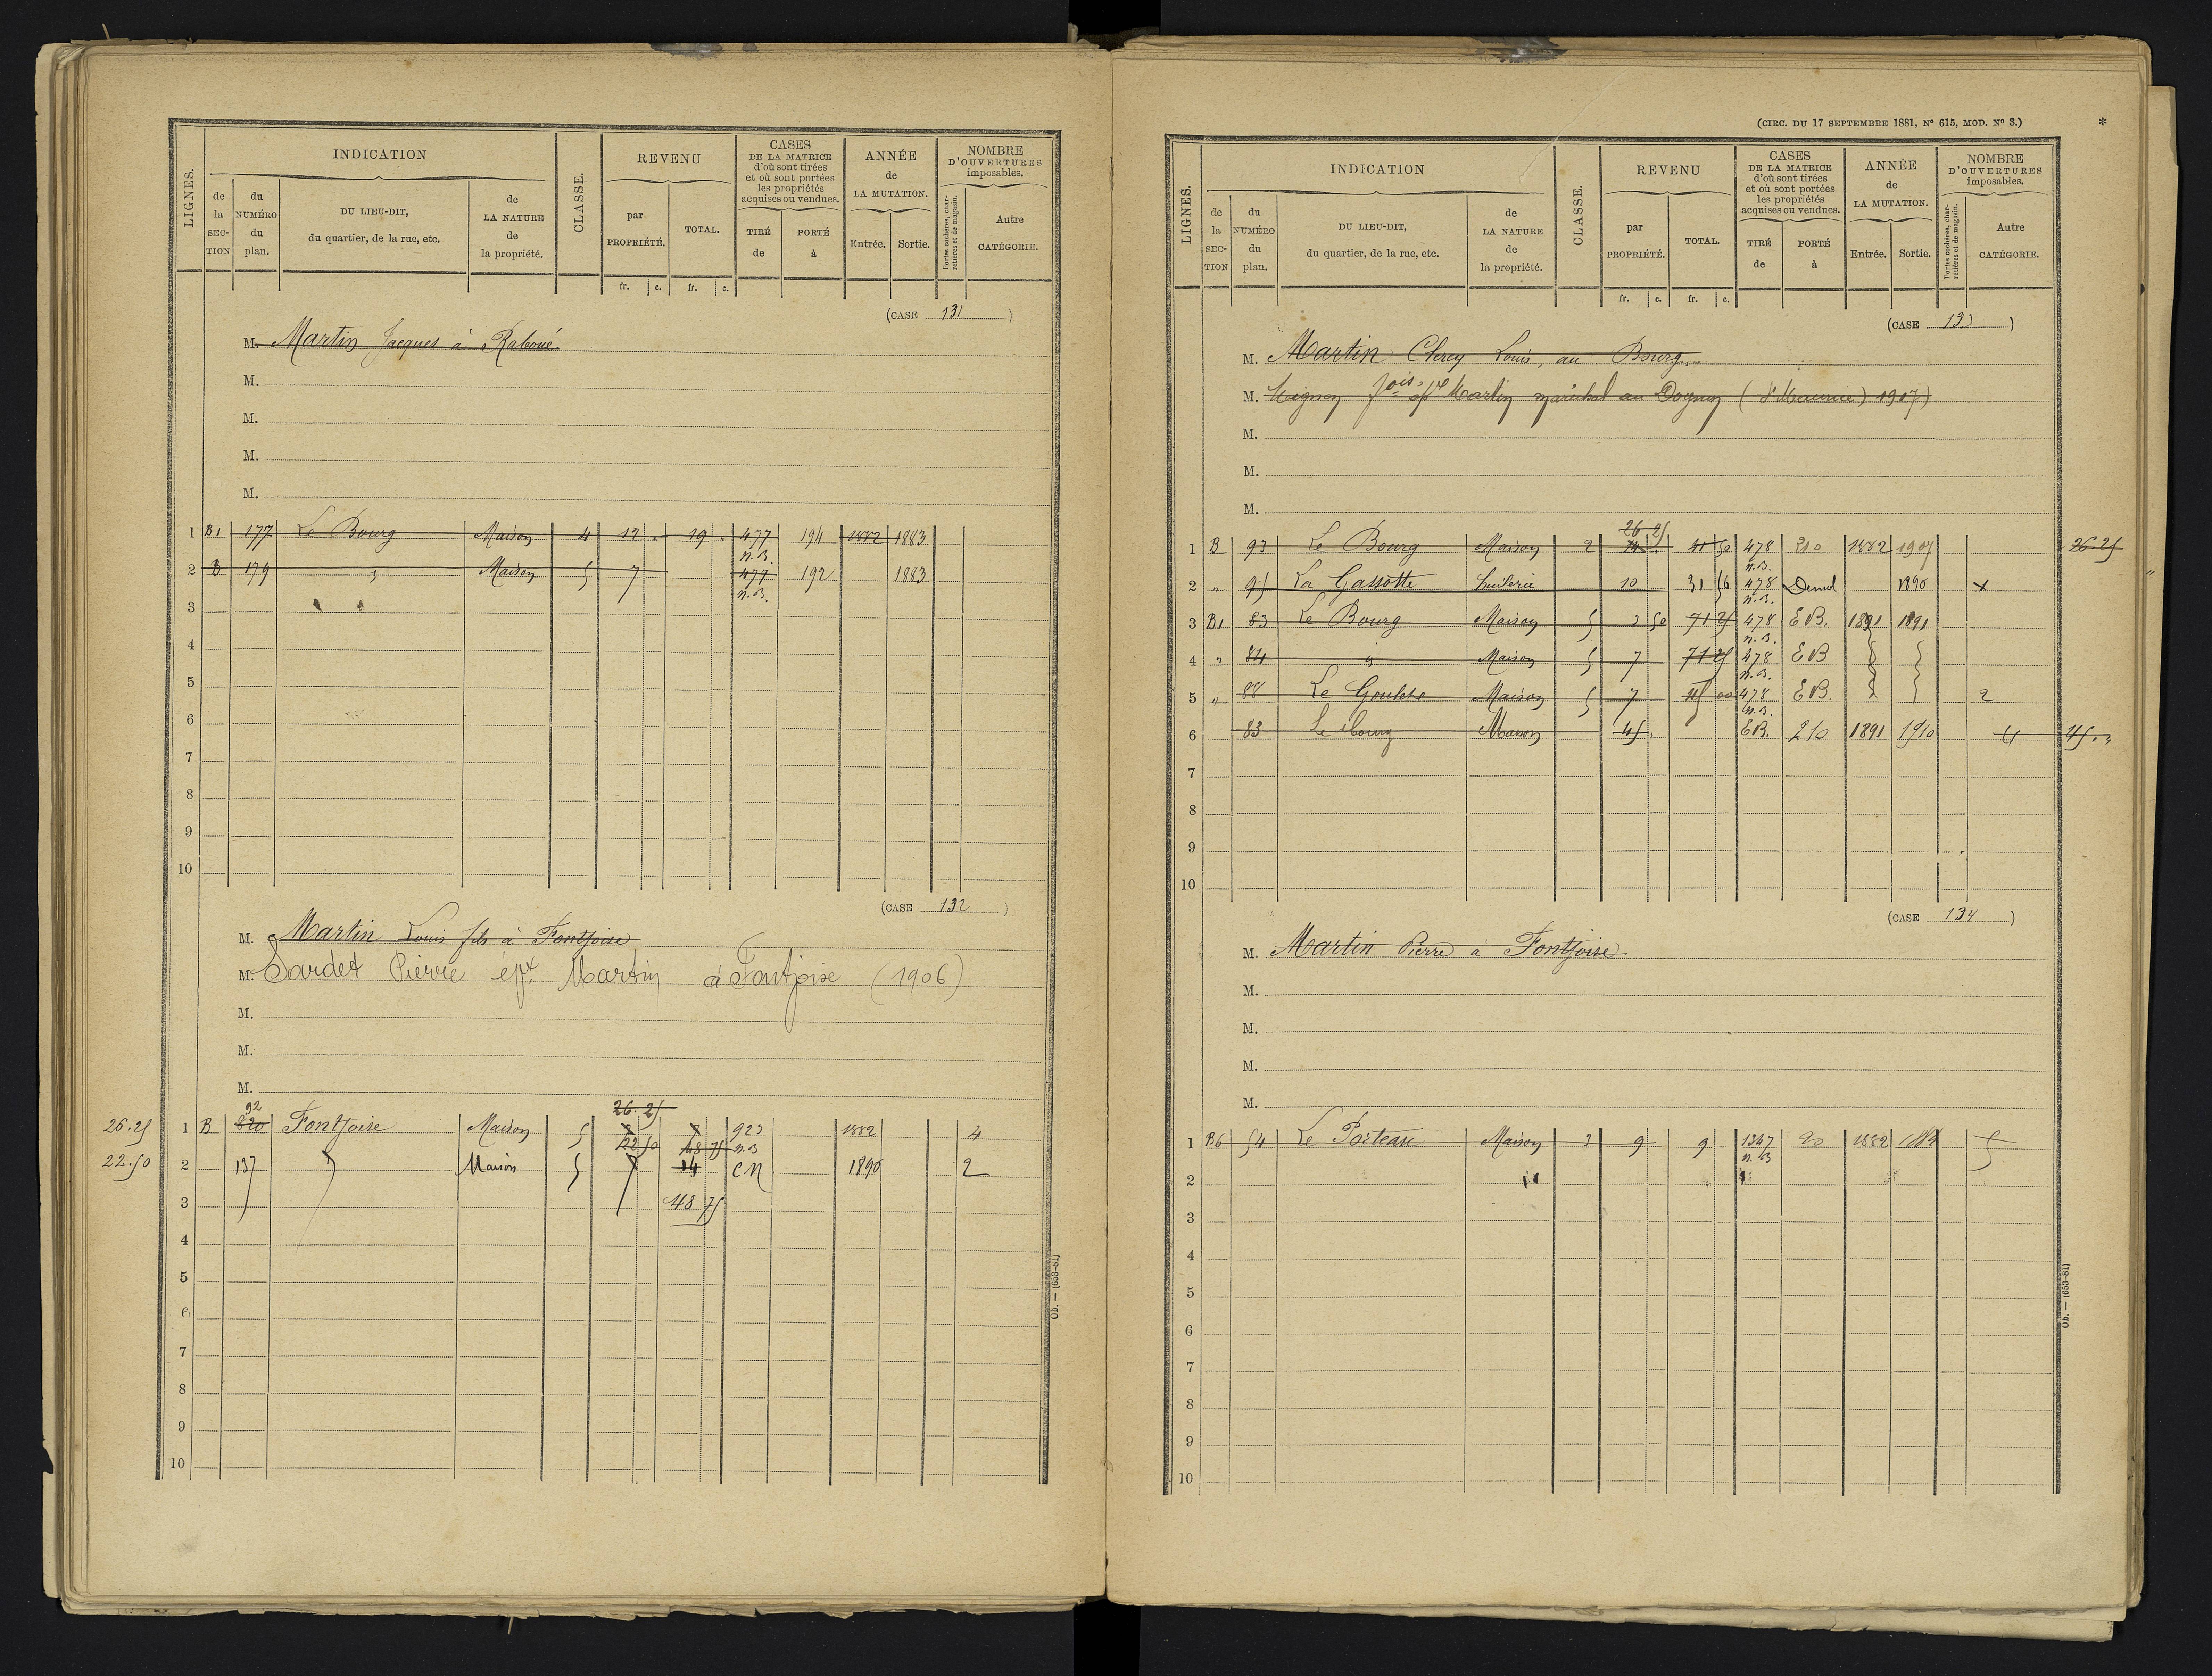 LIGNES.
INDICATION
de la SECTION
du NUMÉRO du plan.
DU LIEU-DIT, du quartier, de la rue, etc.
de LA NATURE de la propriété.
CLASSE.
REVENU
par PROPRIÉTÉ.
TOTAL.
fr. c. fr. c.
CASES DE LA MATRICE d'où sont tirées et où sont portées les propriétés acquises ou vendues.
TIRÉ de
PORTÉ à
ANNÉE de LA MUTATION.
Entrée. Sortie.
NOMBRE D'OUVERTURES imposables.
Portes cochères, charretières et de magasin.
Autre CATÉGORIE.
(CASE 131)
M. Martin Jacques à Raboué
M.
M.
M.
M.
1 B1 177 Le Bourg Maison 4 12 . 19 . 477 n.B. 194 1882 1883
2 B 179 " Maison 5 7 477 n.B. 192 1883
3
4
5
6
7
8
9
10
(CASE 132)
M. Martin Louis fils à Fontjoise
M. Sardet Pierre épx. Martin à Fontjoise (1906)
M.
M.
M.
26.25 1 B 820 92 Fontjoise Maison 5 26.25 22 50 48 75 923 n.B 1882 4
22.50 2 137 " Maison 5 7 14 CN 1890 2
3 48 75
4
5
6
7
8
9
10
Ob. — (653-81)
(CIRC. DU 17 SEPTEMBRE 1881, N° 615, MOD. N° 3.) *
LIGNES.
INDICATION
de la SECTION
du NUMÉRO du plan.
DU LIEU-DIT, du quartier, de la rue, etc.
de LA NATURE de la propriété.
CLASSE.
REVENU
par PROPRIÉTÉ.
TOTAL.
fr. c. fr. c.
CASES DE LA MATRICE d'où sont tirées et où sont portées les propriétés acquises ou vendues.
TIRÉ de
PORTÉ à
ANNÉE de LA MUTATION.
Entrée. Sortie.
NOMBRE D'OUVERTURES imposables.
Portes cochères, charretières et de magasin.
Autre CATÉGORIE.
(CASE 133)
M. Martin Louis, au Bourg.
M. Mignon fois épx Martin maréchal au (St Maurice) 1907)
M.
M.
M.
1 B 93 Le Bourg Maison 2 26 25 41 50 478 n.B. 210 1882 1907 26.25
2 " 95 La Gassotte huilerie 10 31 56 478 n.B. Démol 1890 x
3 B1 83 Le Bourg Maison 5 3 50 71 25 478 n.B. EB. 1891 1891
4 " 84 " Maison 5 7 71 25 478 n.B. EB
5 " 88 Maison 5 7 45 00 478 n.B. EB. 2
6 83 Le Bourg Maison 45 . EB. 210 1891 1910 4 45 . "
7
8
9
10
(CASE 134)
M. Martin Pierre à Fontjoise
M.
M.
M.
M.
1 B6 54 Le Porteau Maison 3 9 9 1347 n.B 90 1882 5
2
3
4
5
6
7
8
9
10
Ob. — (653-81)